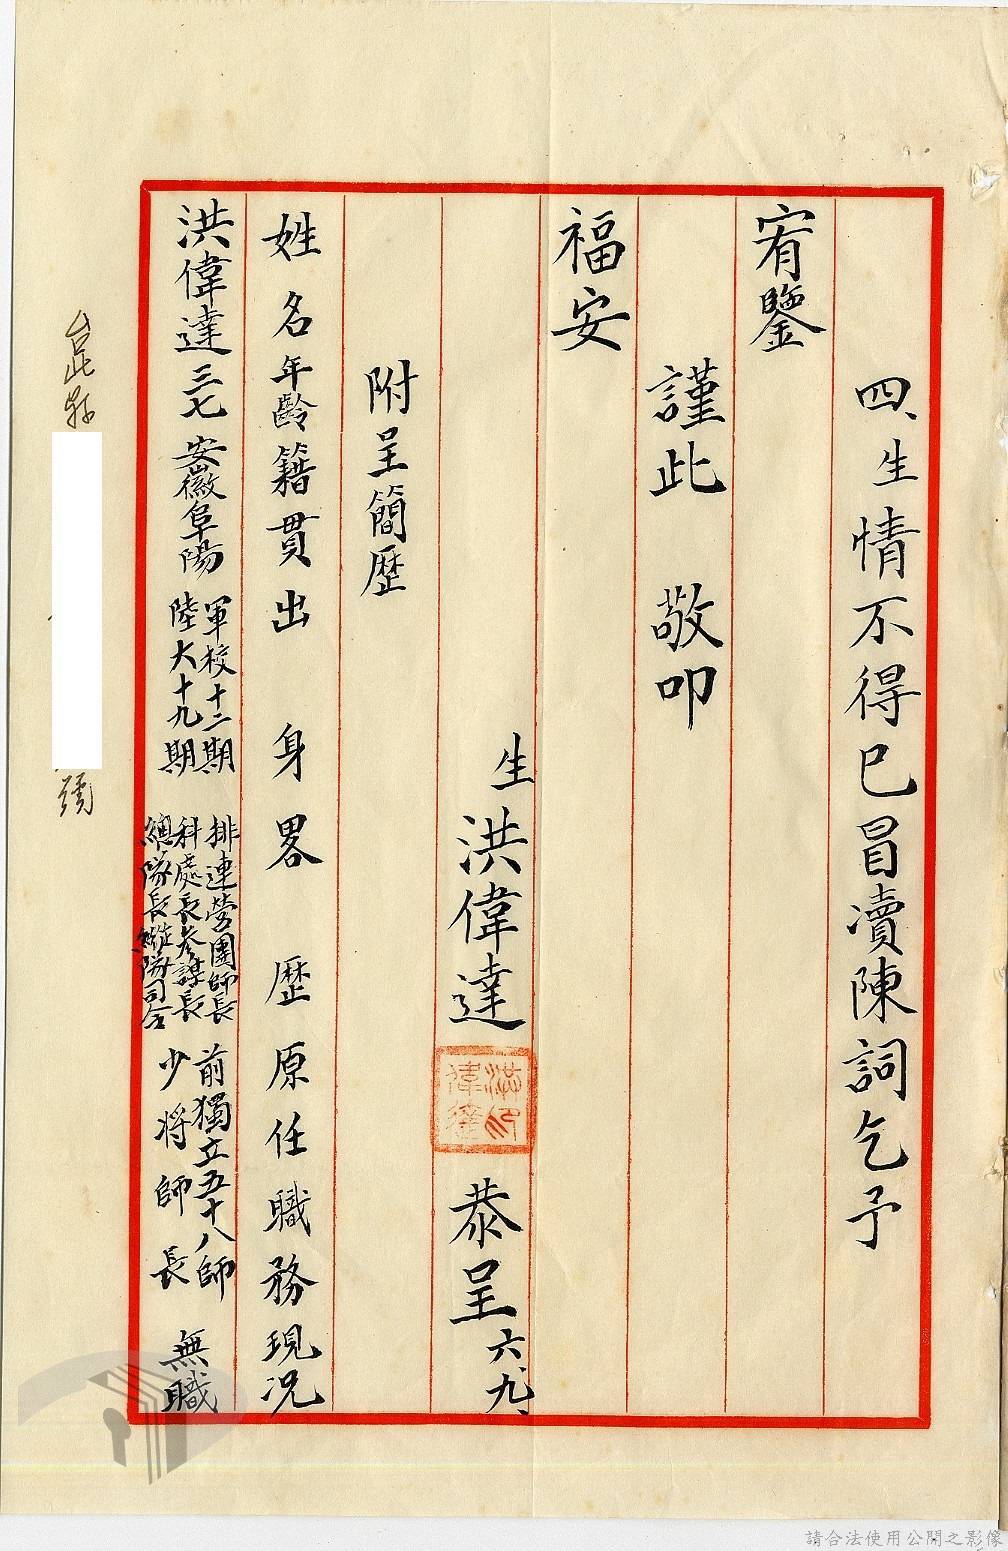 四、生情不得已冒瀆陳詞乞予
宥鑒
謹此　敬叩
福安
生洪偉達　恭呈　六、九、
洪印偉達
附呈簡歷
姓名年齡籍貫出身畧歷原任職務現況
洪偉達　三七　安徽阜陽　軍校十二期
陸大十九期　排連營團師長
科處長參謀長
總隊長縱隊司令　前獨立五十八師
少將師長　無職
號
請合法使用公開之影像